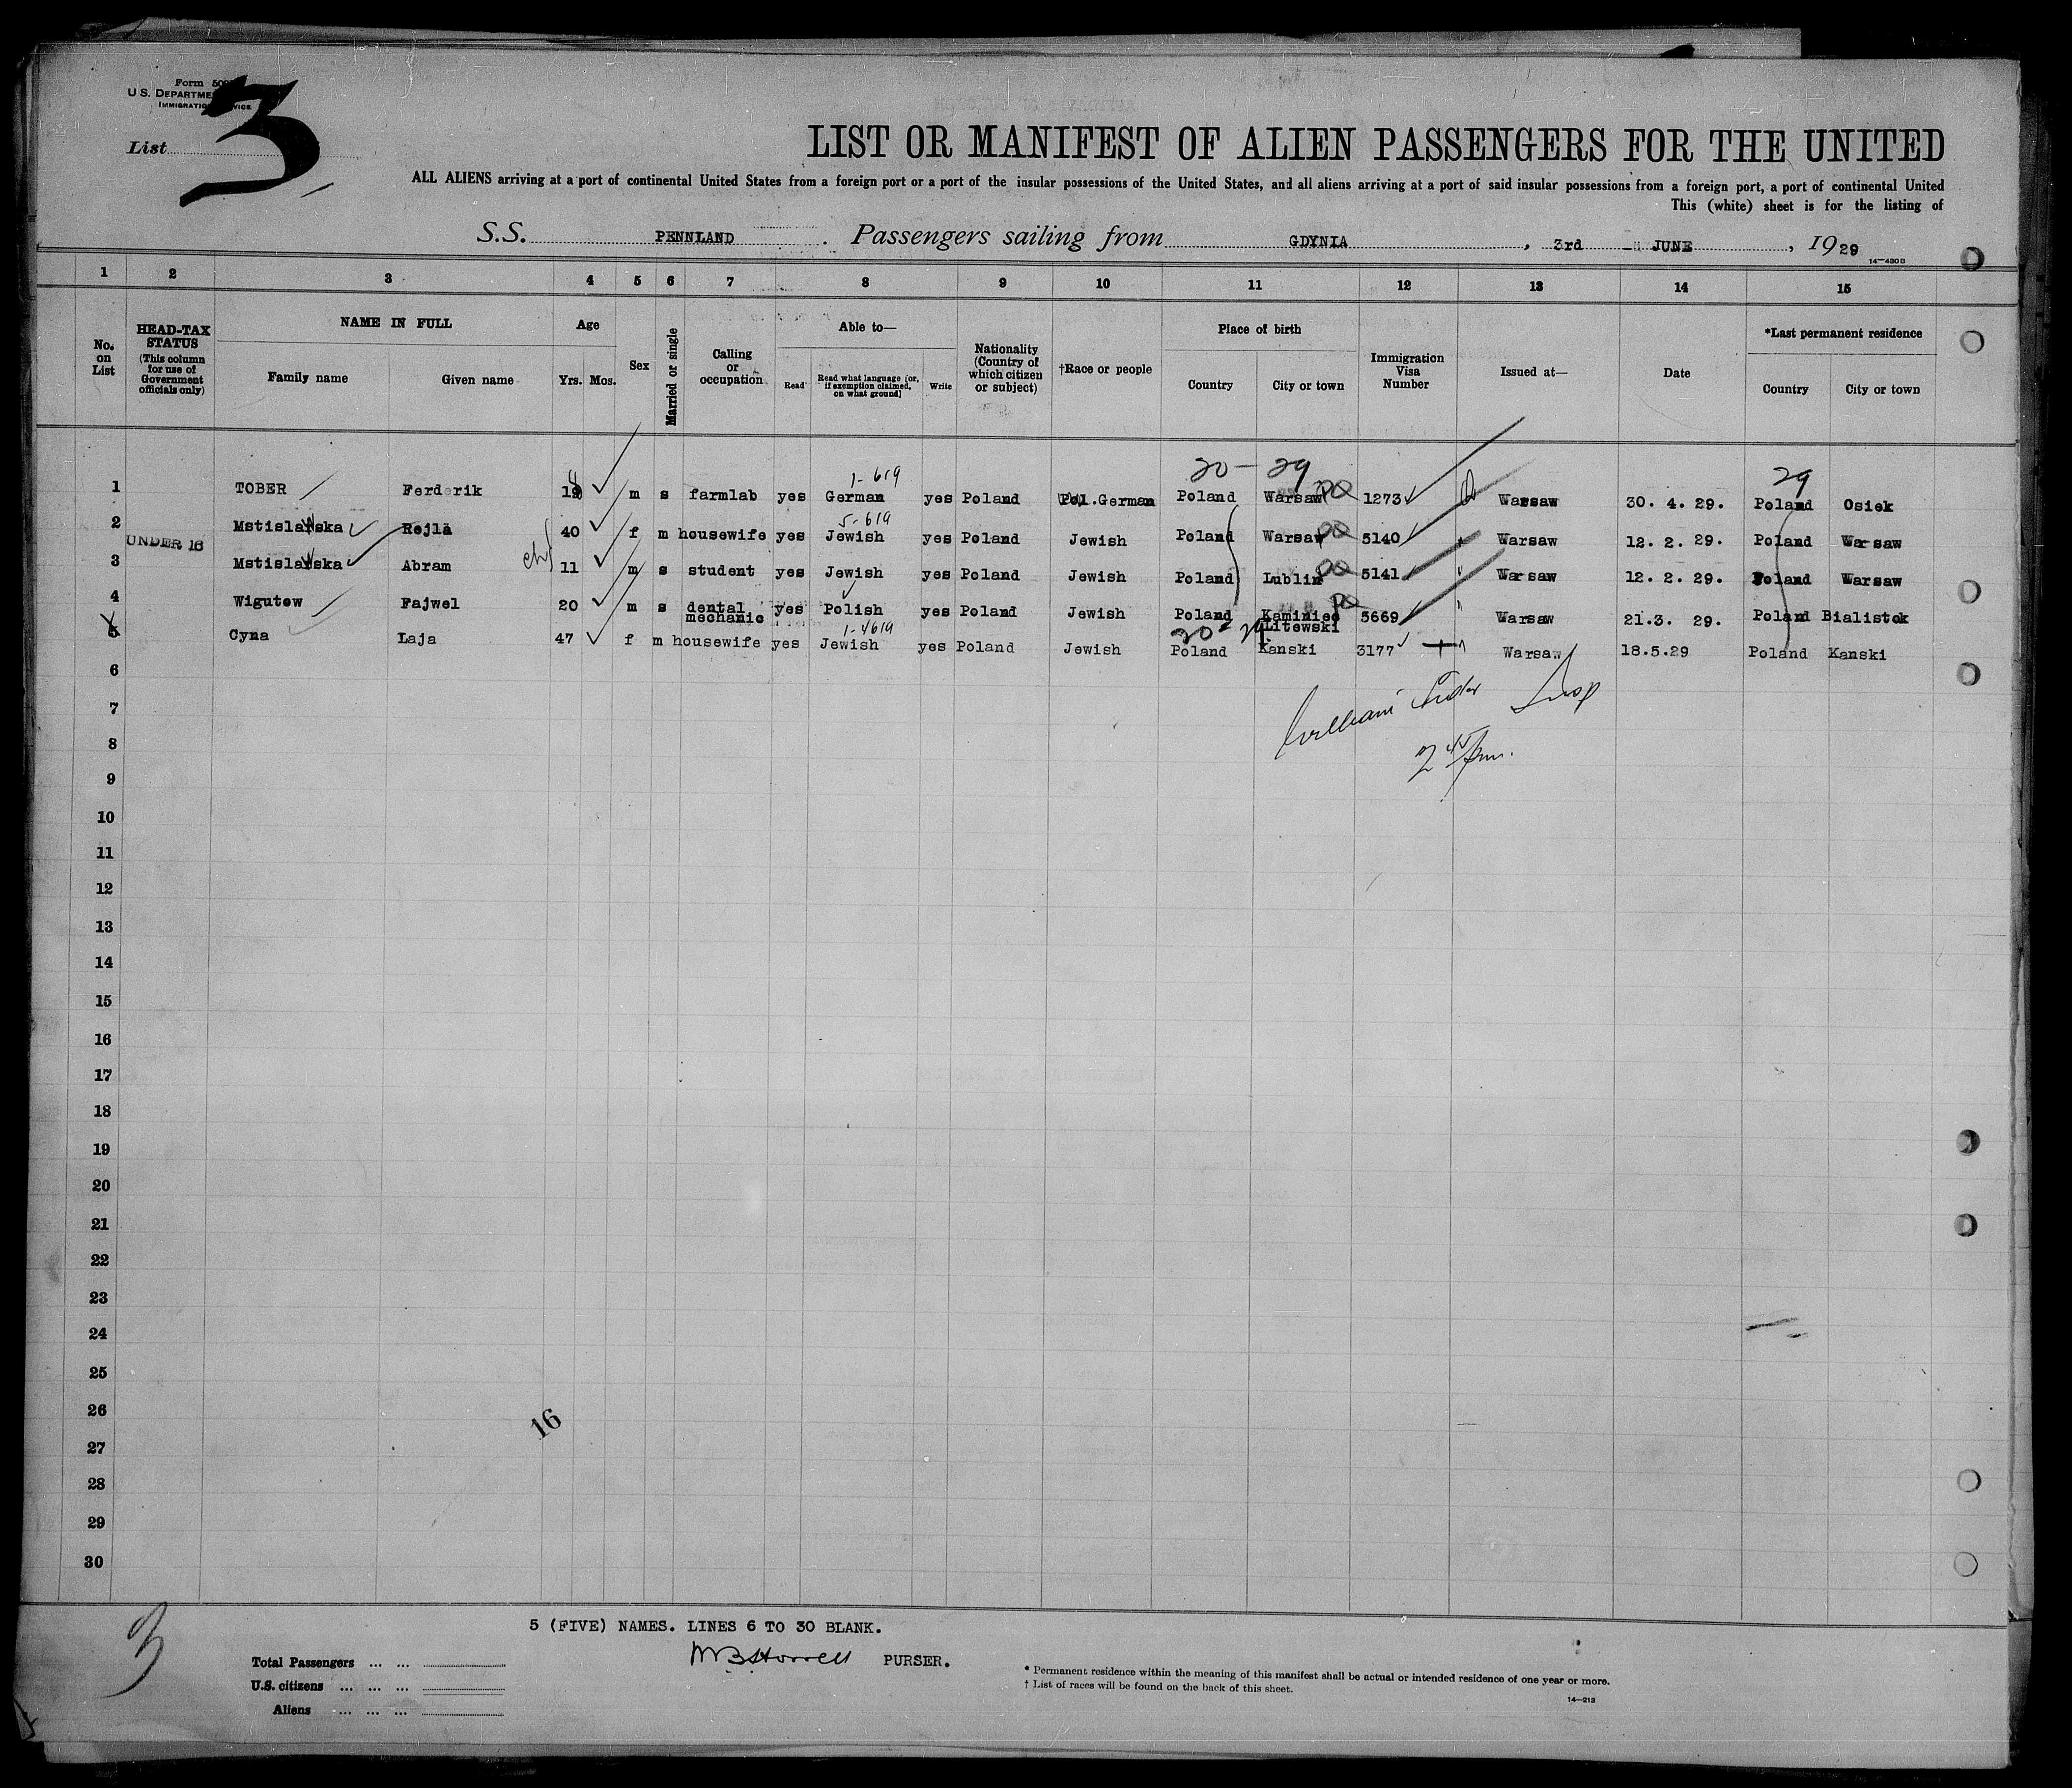 Form 500
U.S. DEPARTME
IMMIGRATIO VICE
List 3
LIST OR MANIFEST OF ALIEN PASSENGERS FOR THE UNITED
ALL ALIENS arriving at a port of continental United States from a foreign port or a port of the insular possessions of the United States, and all aliens arriving at a port of said insular possessions from a foreign port, a port of continental United
This (white) sheet is for the listing of
S.S. PENNLAND. Passengers sailing from GDYNIA, 3rd JUNE, 1929
14-430B
1 2 3 4 5 6 7 8 9 10 11 12 13 14 15
No. on List
HEAD-TAX STATUS (This column for use of Government officials only)
NAME IN FULL
Family name Given name
Age
Yrs. Mos.
Sex
Married or single
Calling or occupation
Able to—
Read Read what language (or, if exemption claimed, on what ground) Write
Nationality (Country of which citizen or subject)
†Race or people
Place of birth
Country City or town
Immigration Visa Number
Issued at—
Date
*Last permanent residence
Country City or town
1-619 20-29 29
1 TOBER Ferderik 19 m s farmlab yes German yes Poland Pol.German Poland Warsaw 1273 Warsaw 30. 4. 29. Poland Osiek
5-619
2 Mstislawska Rejla 40 f m housewife yes Jewish yes Poland Jewish Poland Warsaw 5140 Warsaw 12. 2. 29. Poland Warsaw
UNDER 16
3 Mstislawska Abram 11 m s student yes Jewish yes Poland Jewish Poland Lublin 5141 Warsaw 12. 2. 29. Poland Warsaw
4 Wigutow Fajwel 20 m s dental mechanic yes Polish yes Poland Jewish Poland Kaminiec Litewski 5669 Warsaw 21.3. 29. Poland Bialistok
1-4619 20-29
5 Cyna Laja 47 f m housewife yes Jewish yes Poland Jewish Poland Kanski 3177 Warsaw 18.5.29 Poland Kanski
6
William Insp
7
2 45 pm.
8
9
10
11
12
13
14
15
16
17
18
19
20
21
22
23
24
25
26
16
27
28
29
30
5 (FIVE) NAMES. LINES 6 TO 30 BLANK.
3
PURSER.
Total Passengers
U.S. citizens
Aliens
* Permanent residence within the meaning of this manifest shall be actual or intended residence of one year or more.
† List of races will be found on the back of this sheet.
14-213